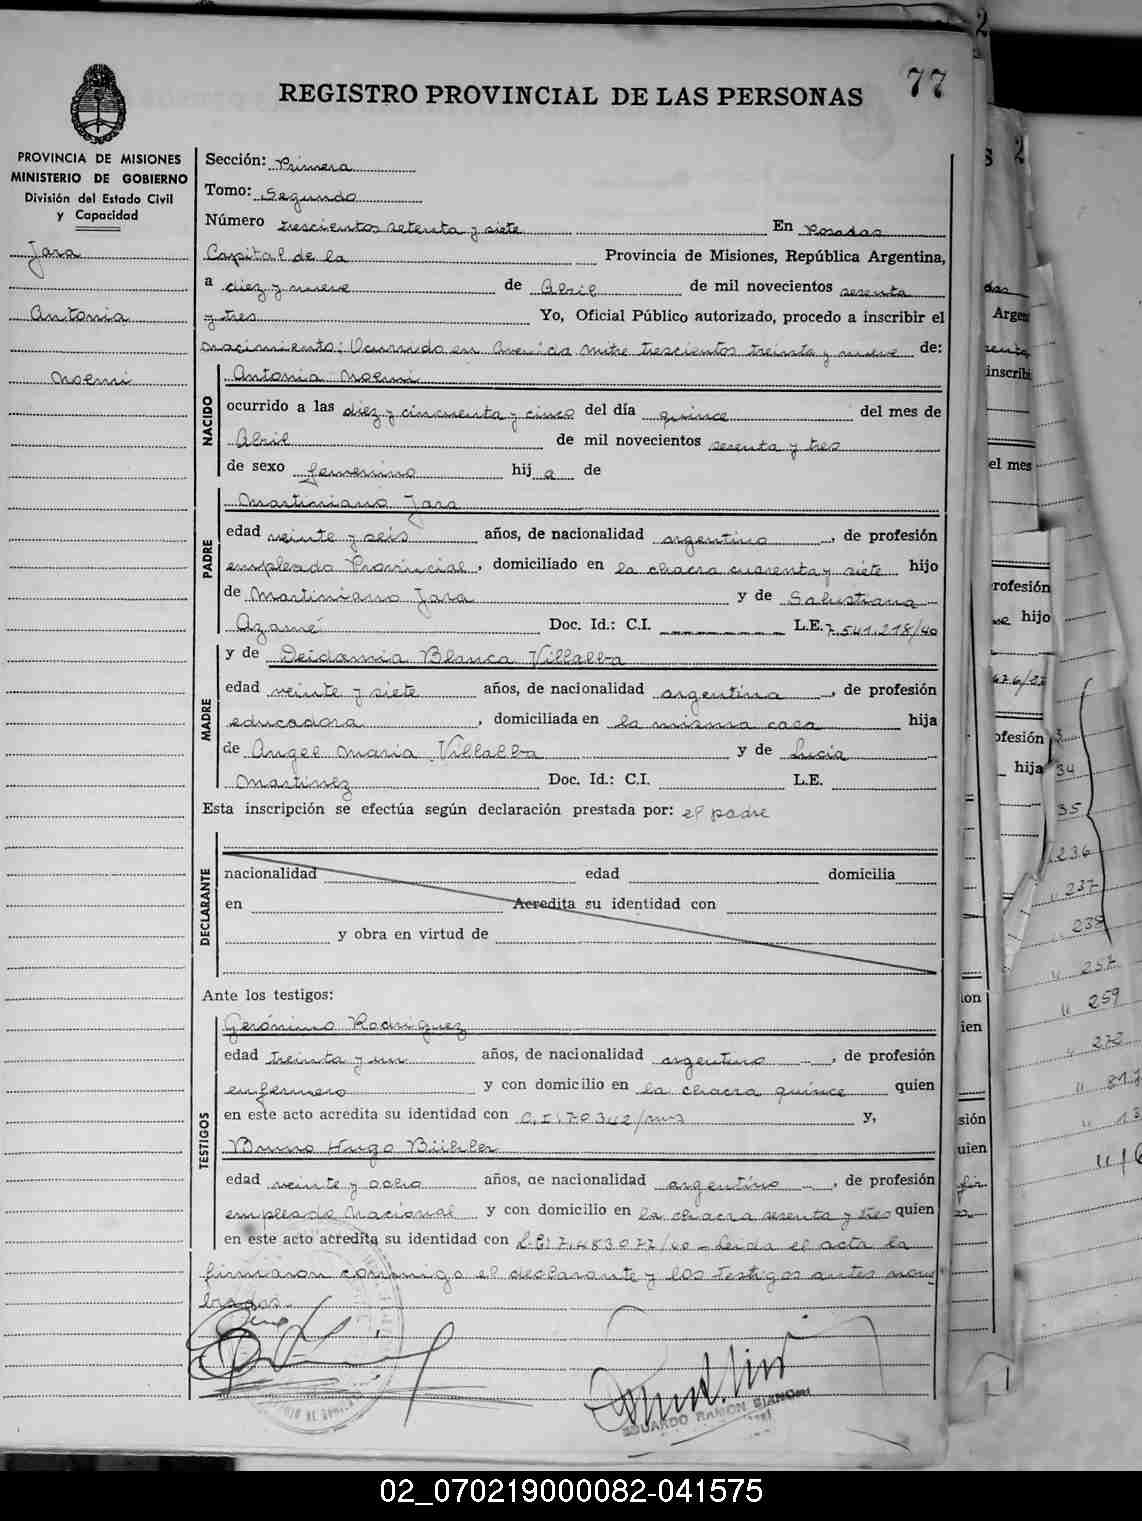 77
REGISTRO PROVINCIAL DE LAS PERSONAS
PROVINCIA DE MISIONES
MINISTERIO DE GOBIERNO
División del Estado Civil
y Capacidad
Jara
Antonia
Noemi
Sección: Primera
Tomo: Segundo
Número trescientos setenta y siete En Posadas
Capital de la Provincia de Misiones, República Argentina,
a diez y nueve de Abril de mil novecientos sesenta
y tres Yo, Oficial Público autorizado, procedo a inscribir el
nacimiento; Ocurrido en Avenida Mitre trescientos treinta y nueve de:
NACIDO
Antonia Noemi
ocurrido a las diez y cincuenta y cinco del día quince del mes de
Abril de mil novecientos sesenta y tres
de sexo femenino hij a de
PADRE
Martiniano Jara
edad veinte y seis años, de nacionalidad argentino, de profesión
empleado Provincial, domiciliado en la chacra cuarenta y siete hijo
de Martiniano Jara y de Salustiana
Azamé Doc. Id.: C.I. L.E. 7.541.218/40
MADRE
y de Deidamia Blanca Villalba
edad veinte y siete años, de nacionalidad argentina, de profesión
educadora, domiciliada en la misma casa hija
de Angel Maria Villalba y de Lucía
Martinez Doc. Id.: C.I. L.E.
Esta inscripción se efectúa según declaración prestada por: el padre
DECLARANTE
nacionalidad edad domicilia
en Acredita su identidad con
y obra en virtud de
Ante los testigos:
TESTIGOS
Gerónimo Rodriguez
edad treinta y un años, de nacionalidad argentino, de profesión
enfermero y con domicilio en la chacra quince quien
en este acto acredita su identidad con C.I. 70342/mns y,
Bruno Hugo Bühler
edad veinte y ocho años, de nacionalidad argentino, de profesión
empleado Nacional y con domicilio en la chacra sesenta y tres quien
en este acto acredita su identidad con L.E. 7.483.077/40 - Leida el acta la
firmaron conmigo el declarante y los testigos antes nom
brados.
EDUARDO RAMON BIANCHI
02_070219000082-041575